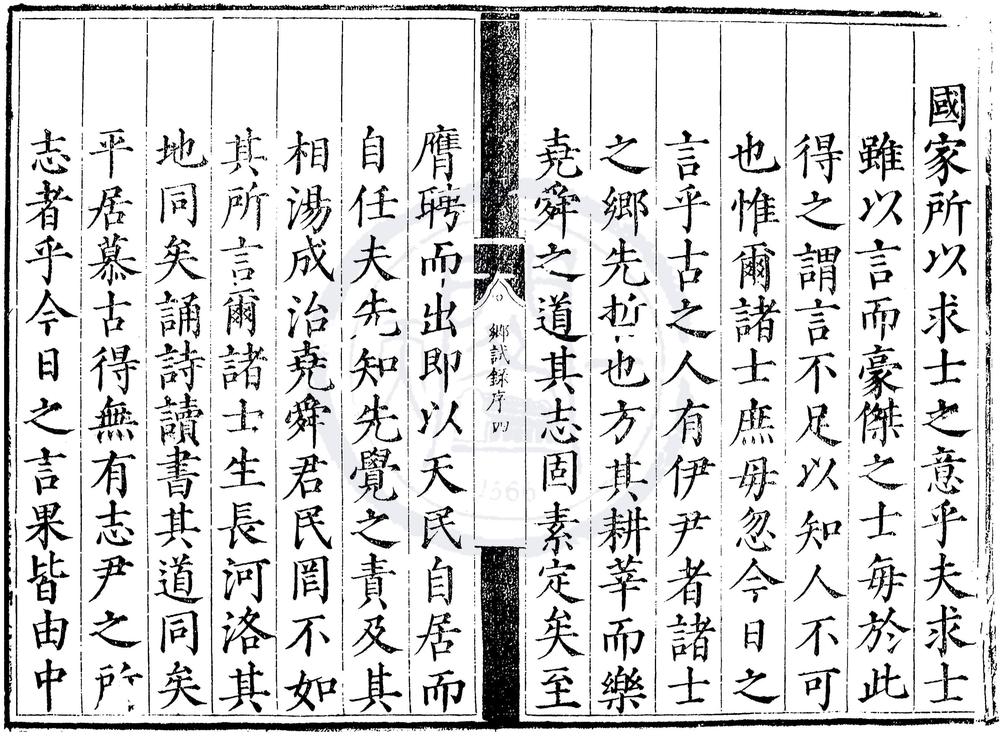 國家所以求士之意乎夫求士
雖以言而豪傑之士每於此
得之謂言不足以知人不可
也惟爾諸士庶毋忽今日之
言乎古之人有伊尹者諸士
之鄉先哲也方其耕莘而樂
堯舜之道其志固素定矣至
鄉試錄序四
膺聘而出即以天民自居而
自任夫先知先覺之責及其
相湯成治堯舜君民罔不如
其所言爾諸士生長河洛其
地同矣誦詩讀書其道同矣
平居慕古得無有志尹之所
志者乎今日之言果皆由中